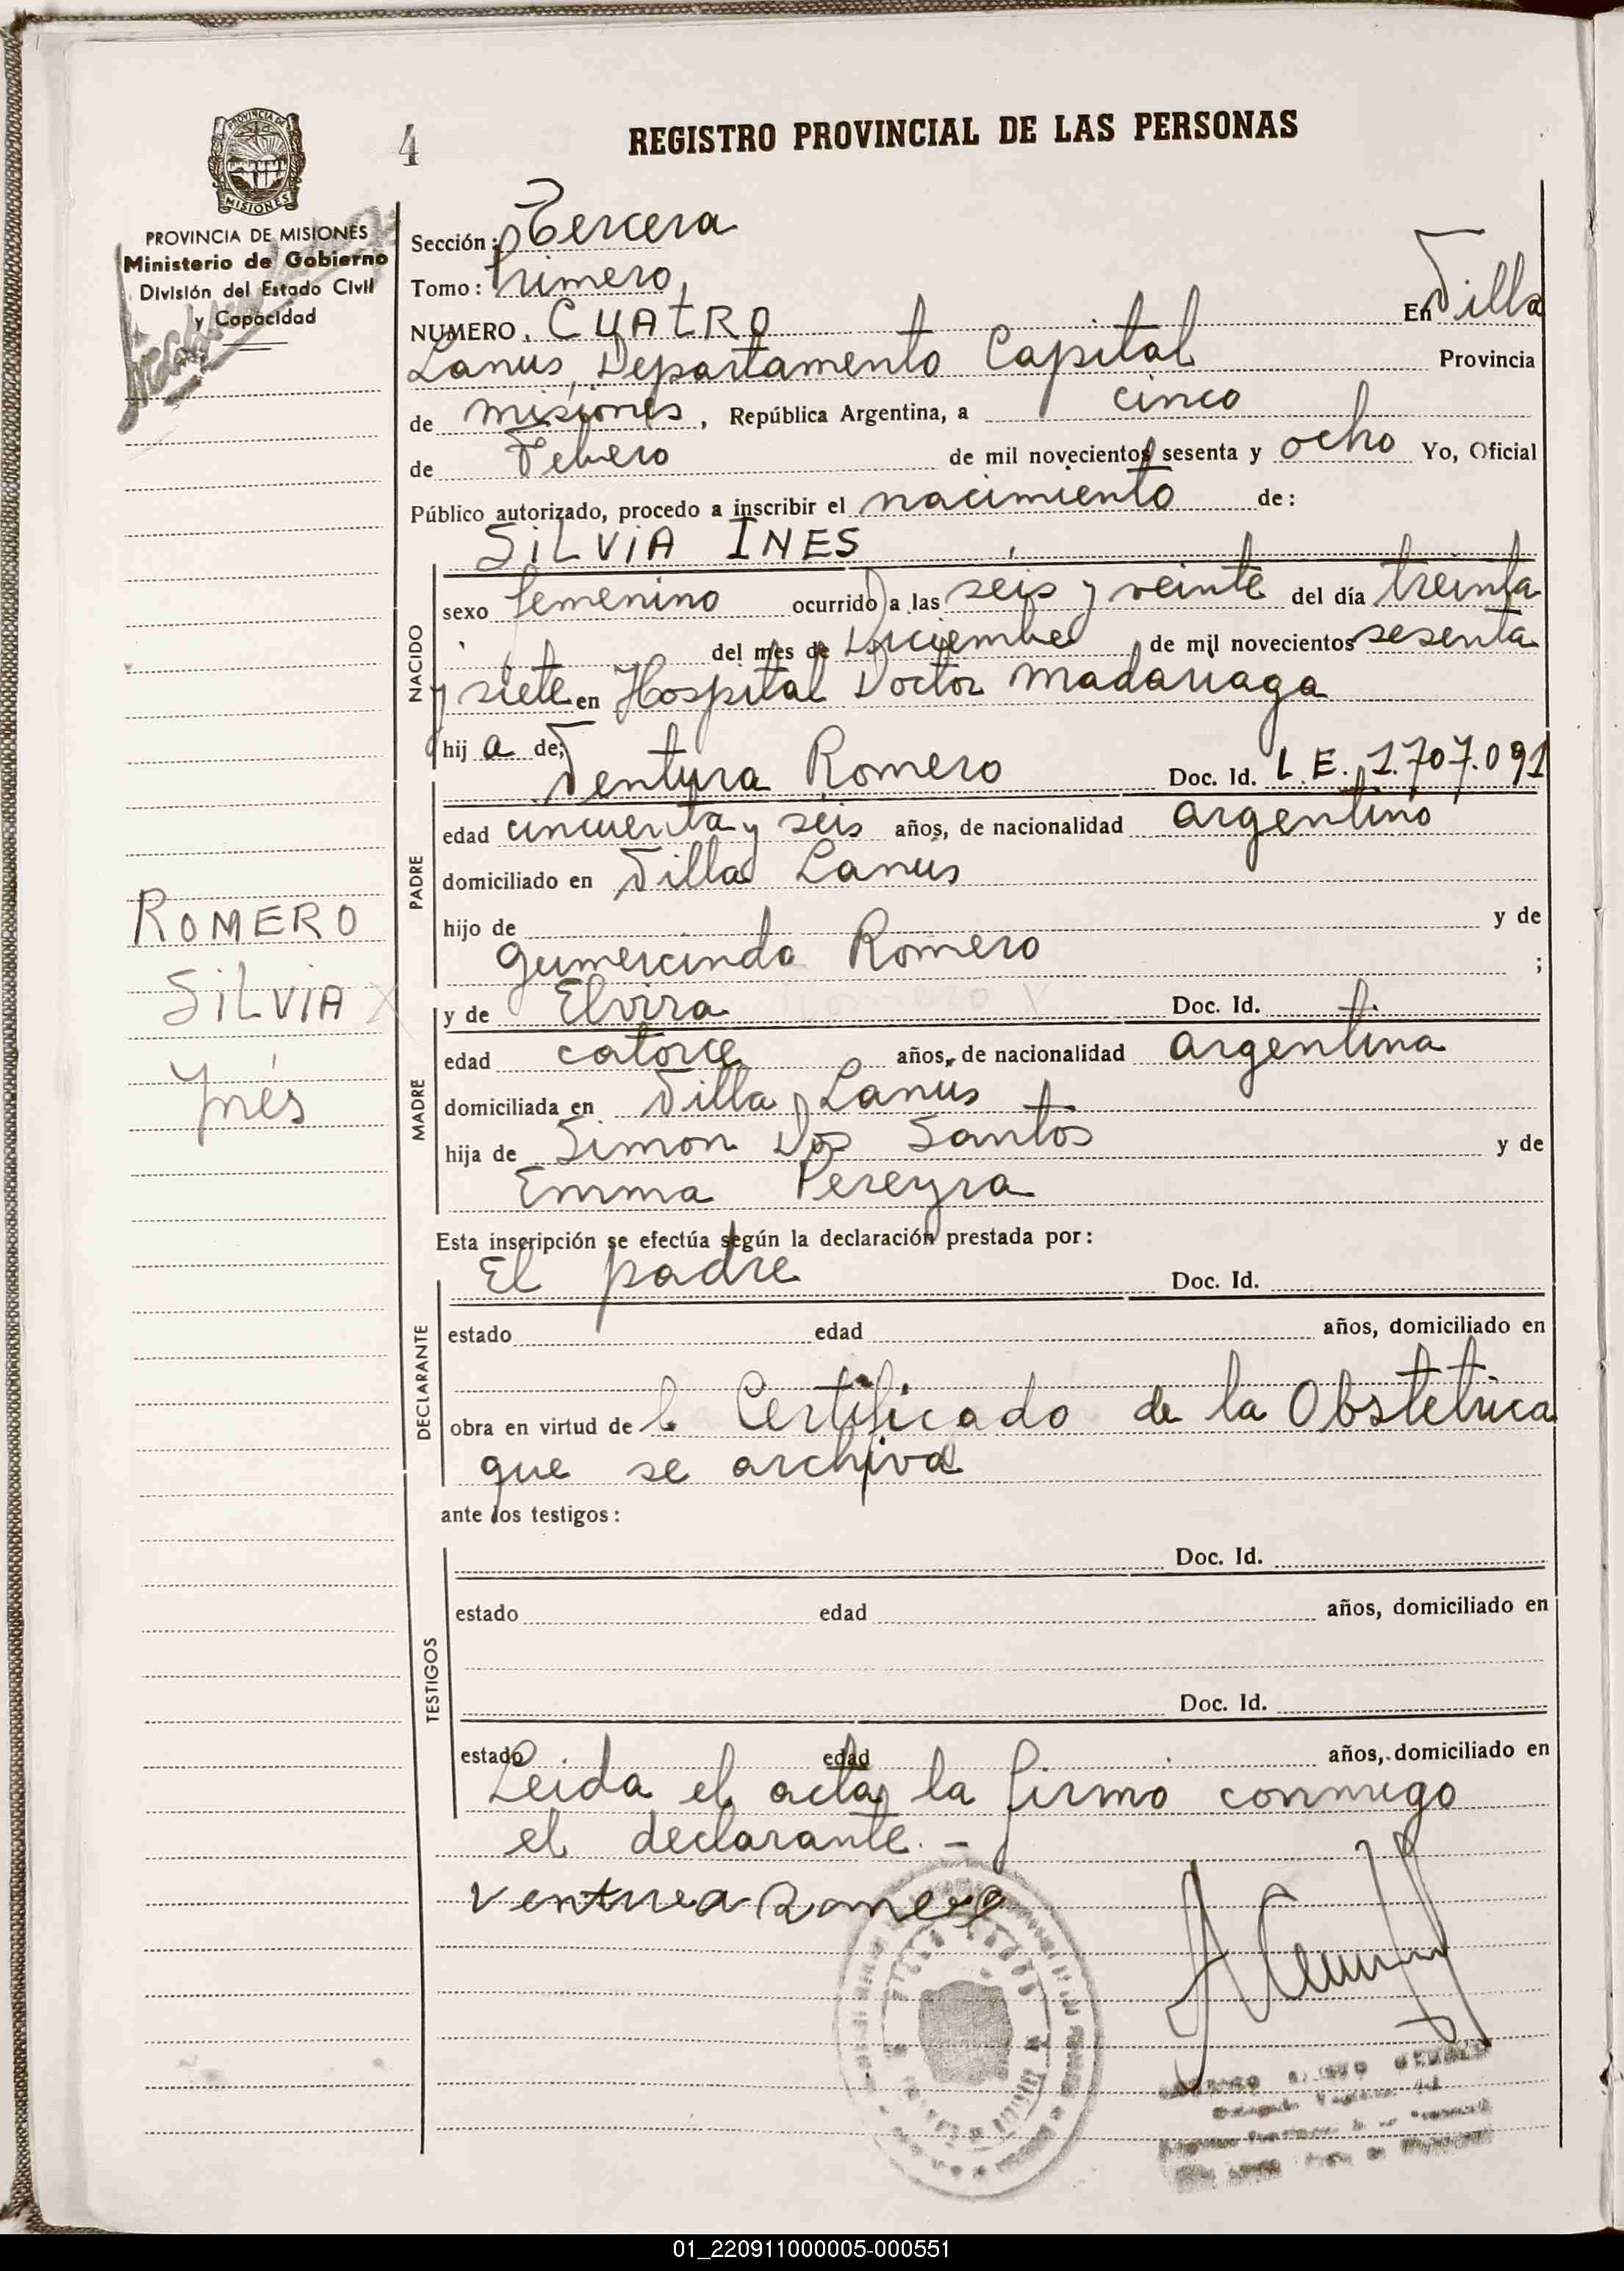 4
REGISTRO PROVINCIAL DE LAS PERSONAS
PROVINCIA DE
MISIONES
PROVINCIA DE MISIONES
Ministerio de Gobierno
División del Estado Civil
y Capacidad
Sección: Tercera
Tomo: Primero
NUMERO. CUATRO En Villa
Lanus, Departamento Capital Provincia
de misiones, República Argentina, a cinco
de Febrero de mil novecientos sesenta y ocho Yo, Oficial
Público autorizado, procedo a inscribir el nacimiento de:
SILVIA INES
NACIDO
sexo femenino ocurrido a las seis y veinte del día treinta
del mes de Diciembre de mil novecientos sesenta
y siete en Hospital Doctor Madariaga
hij a de:
Ventura Romero Doc. Id. L.E. 1.707.091
PADRE
edad cincuenta y seis años, de nacionalidad argentino
domiciliado en Villa Lanus
hijo de y de
Gumercindo Romero ;
ROMERO
SILVIA
Ynés
y de Elvira Doc. Id.
MADRE
edad catorce años, de nacionalidad argentina
domiciliada en Villa Lanus
hija de Simon Dos Santos y de
Emma Pereyra
Esta inscripción se efectúa según la declaración prestada por:
El padre Doc. Id.
DECLARANTE
estado edad años, domiciliado en
obra en virtud de l Certificado de la Obstetrica
que se archiva
ante los testigos:
Doc. Id.
TESTIGOS
estado edad años, domiciliado en
Doc. Id.
estado edad años, domiciliado en
Leida el acta, la firmo conmigo
el declarante.-
Ventura Romero
01_220911000005-000551